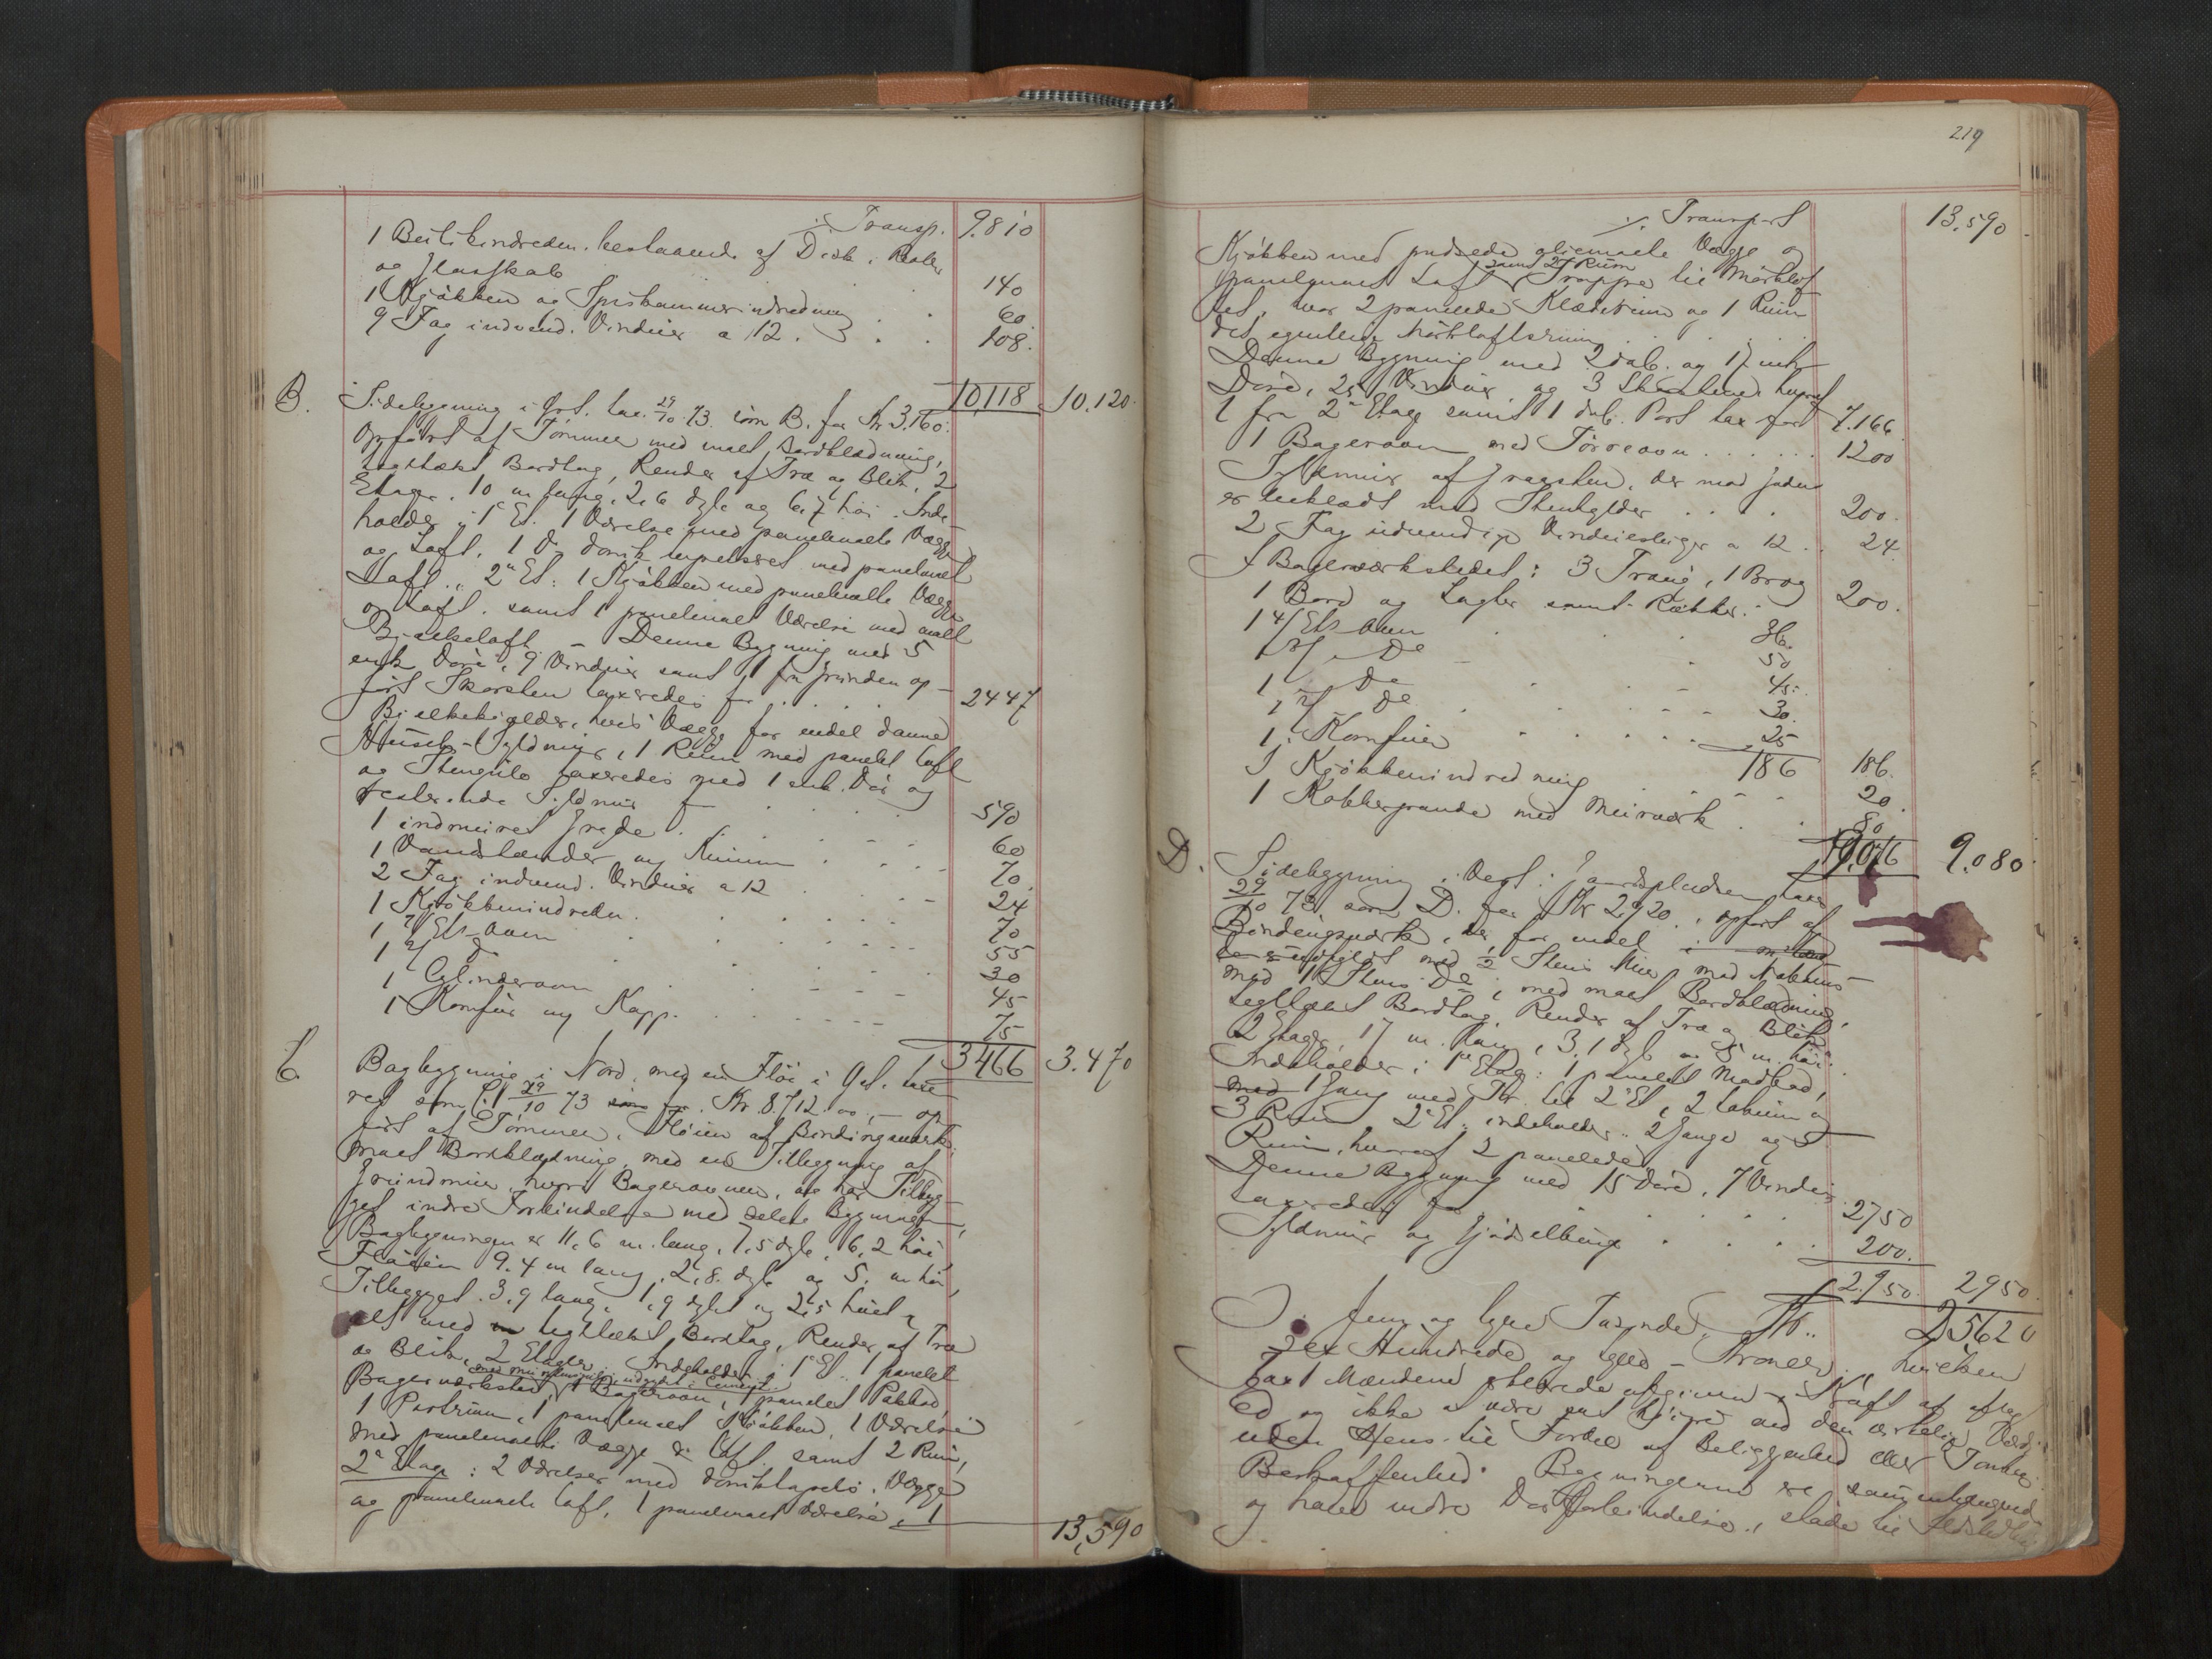 ./. Transp. 9.810
1 Butikindreden. bestaaende af Disk, Reoler
og Glasskab 140
1 Kjøkken og Spiskammerindredning . . 60
9 Fag indvend. Vinduer a 12 . . . 108.
10,118 10.120.
B. Sidebygning i Øst. tax. 29/10 73. som B. for Kr 3.160.
Opført af Tømmer med malt Bordklædning,
tegltækt Bordtag, Render af Træ og Blik, 2
Etager. 10 m lang, 2,6 dyb og 6,7 høi. Inde-
holder i 1e Et. 1 Værelse med panelmalte Vægge
og Loft. 1 Do domk. tapetseret med panelmalt
Loft. 2n Et: 1 Kjøkken med panelmalte Vægge
og Loft. samt 1 panelmalt Værelse med malt
Bjælkeloft. – Denne Bygning med 5
enk Døre, 9 Vinduer samt 1 fra Grunden op-
ført Skorsten taxeredes for . . . . 2447
Bjelkekjelder, hvis Vægge for endel danne
Husets Syldmur, 1 Rum med panelt Loft
og Stengulv taxeredes med 1 enk. Dør og
resterende Syldmur for . . . 590
1 indmuret Gryde . . . . . 60
1 Vandstænder og Kumme . . . 70.
2 Fag indvend. Vinduer a 12 . . 24
1 Kjøkkenindreden. . . . . . 70
1 3/ Et. Ovn . . . . . 55
1 2/ D . . . . . 30
1 Cylinderovn . . . . 45
1 Komfur og Kapp. . . . . 75
3466 3.470
C. Bagbygning i Nord med en Fløi i Øst. taxe
ret som C. 29/10 73 Kr. 8.712.00, – op
ført af Tømmer, Fløien af Bindingsverk
malt Bordklædning, med en Tilbygning af
Grundmur, hvori Bagerovnen, og har Tilbyg-
get indre Forbindelse med selve Bygningen,
Bagbygningen er 11,6 m. lang, 7,5 dyb, 6,2 høi,
Fløien 9.4 m lang, 2,8. dyb og 5. m høi,
Tilbygget. 3,9 lang, 1,9 dybt og 2,5 høit,
alt med tegltækt Bordtag, Render af Træ
og Blik, 2 Etager. Indeholder i 1e Et. 1 panelt
Bagerværksted, 1 Bagerovn, 1 panelt Pakbod,
1 Portrum, 1 panelmalt Kjøkken, 1 Værelse
med panelmalte Vægge & Loft samt 2 Rum,
2n Etage: 2 Værelser med domktapets. Vægge
og panelmalte Loft, 1 panelmalt Værelse, 1
13,590
219
./. Transport 13,590
Kjøkken med pudsede oliemalte Vægge og
panelmalt Loft samt 2 Rum Trappe til Mørklof
tet, hvor 2 panelede Klædesrum og 1 Rum
det egentlige Mørkloftsrum . . . . .
Denne Bygning med 2 dob. og 17 enk
Døre, 25 Vinduer og 3 Skorstene hvoraf
1 fra 2n Etage samt 1 dob. Port tax for 7.166
1 Bagerovn med Tørreovn . . . . . . 1200
Syldmur af Graasten, der mod Gaden
er beklædt med Stenheller . . . . 200.
2 Fag udvendige Vinduer a 12 . . 24
I Bagerværkstedet: 3 Traug, 1 Brog
1 Bord og Lagler samt Rækker . 200.
1 4/ Ets Ovn . . . 36.
1 3/ De . . 50
1 De . . . 45.
1 2/ De . . . . 30.
1 Komfur . . . . . . 25
186 186.
1 Kjøkkenindredning . . . 20.
1 Kobberpande med Murværk . . 80
9.076 9.080.
D. Sidebygning i Vest i Gaardspladsen, taxe
29/10 73 som D. for Kr 2.920, opført af
Bindingsværk, der for endel
udfyldt med 1/2 Stens Mur, mod Naboens
med 1 Stens De, med malt Bordklædning,
tegltækt Bordtag, Render af Træ og Blik
2 Etager, 17 m. lang, 3,1 dyb og 5 m. høi.
Indeholder i 1e Etage: 1 panelt Madbod,
1 Gang med Tr. til 2n Et, 2 Lokum og
3 Rum. 2n Et. indeholder: 2 Gange og 5
Rum, hvoraf 2 panelede.
Denne Bygning med 15 Døre, 7 Vinduer
taxeredes for . . . . . 2750
Syldmur og Gjødselbinge . . . . 200.
2.950. 2950.
Fem og tyve Tusinde, Kr.. 25620
Sex Hundrede og tyve – Kroner. hvilken
Taxt Mændene erklærede afgiven i Kraft af aflagt
Ed og ikke at være sat høiere end den virkelige Værdi
uden Hens. til Fordel af Beliggenhed eller Tomtens
Beskaffenhed. Bygningerne ere sammenhængende
og have indre Dørforbindelse, støde til